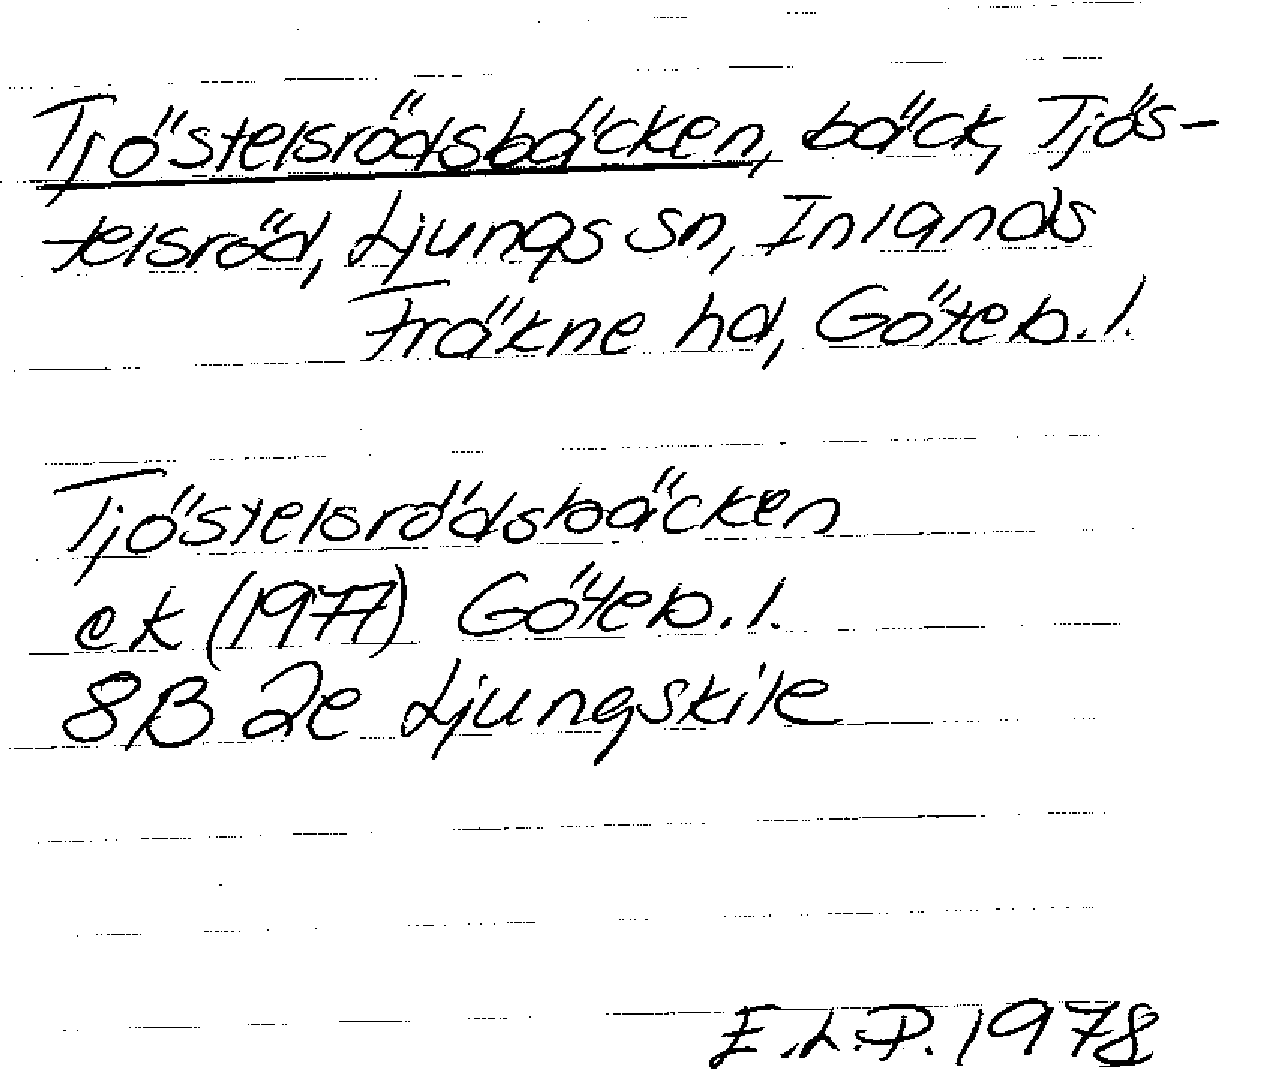 Tjöstelsrödsbäcken, bäck, Tjös-
telsröd, Ljungs sn, Inlands
Fräkne hd, Göteb. l.
Tjöstelsrödsbäcken
ek (1977) Göteb. l.
8B 2e Ljungskile
E.L.P. 1978